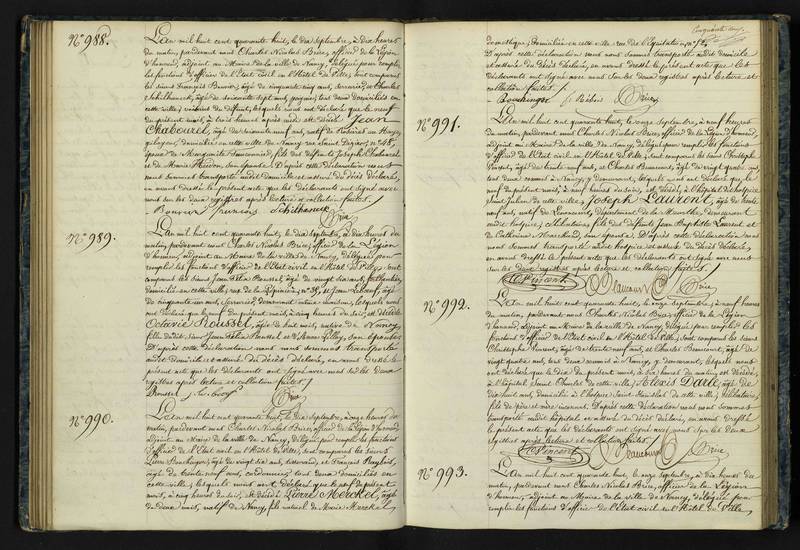 N° 988.
L'an mil huit cent quarante huit, le dix Septembre, à dix heures
du matin, pardevant nous Charles Nicolas Brice, officier de la Légion
d'honneur, adjoint au Maire de la ville de Nancy, délégué pour remplir
les fonctions d'officier de l'Etat civil en l'Hôtel de Ville, sont comparus
les sieurs François Bouver, âgé de cinquante cinq ans, serrurier, et Charles
Schilhaneck, âgé de soixante sept ans, tous deux domiciliés en
cette ville, voisins du défunt, lesquels nous ont déclaré que le neuf
du présent mois, à trois heures après midi, est décédé Jean
Chabourel, âgé de soixante neuf ans, natif de
domicilié en cette ville de Nancy rue Saint Dizier, n° 48,
époux de Marguerite fils des défunts Joseph Chabourel
et de Marie D'après cette déclaration
nous sommes transporté audit domicile et assuré du décès déclaré,
en avons dressé le présent acte que les déclarants ont signé avec
nous sur les deux registres après lecture et collation faites.
Bouver françois Schilhaneck Brice
N° 989.
L'an mil huit cent quarante huit, le dix Septembre, à dix heures du
matin, pardevant nous Charles Nicolas Brice, officier de la Légion
d'honneur, adjoint au Maire de la ville de Nancy, délégué pour
remplir les fonctions d'officier de l'Etat civil en l'Hôtel de Ville, sont
comparus les sieurs Jean Félix Roussel, âgé de vingt six ans,
domicilié en cette ville, rue de la Pépinière, n° 35, et Jean
de cinquante un ans, domicilié même maison, lesquels nous
ont déclaré que le neuf du présent mois, à cinq heures du soir, est décédée
Octavie Roussel, âgée de huit mois, native de Nancy,
fille dudit sieur Jean Félix Roussel et d'Anne son épouse.
D'après cette déclaration nous nous sommes transporté
audit domicile et assuré du décès déclaré, en avons dressé le
présent acte que les déclarants ont signé avec nous sur les deux
registres après lecture et collation faites.
Roussel Brice
N° 990.
L'an mil huit cent quarante huit, le dix Septembre, à onze heures du
matin, pardevant nous Charles Nicolas Brice, officier de la Légion d'honneur,
adjoint au Maire de la ville de Nancy, délégué pour remplir les fonctions
d'officier de l'Etat civil en l'Hôtel de Ville, sont comparus les sieurs
Pierre âgé de vingt six ans, et François
âgé de trente neuf ans, cordonnier, tous deux domiciliés en
cette ville, lesquels nous ont déclaré que le neuf du présent
mois, à cinq heures du soir, est décédé Pierre Merckel, âgé
de deux mois, natif de Nancy, fils naturel de Marie Merckel,
domestique, domiciliée en cette ville rue de l'Equitation, n° 12.
D'après cette déclaration nous nous sommes transporté audit domicile
et assuré du décès déclaré, en avons dressé le présent acte que les
déclarants ont signé avec nous sur les deux registres après lecture et
collation faites.
Brice
N° 991.
L'an mil huit cent quarante huit, le onze Septembre, à neuf heures
du matin, pardevant nous Charles Nicolas Brice, officier de la Légion d'honneur,
adjoint au Maire de la ville de Nancy, délégué pour remplir les fonctions
d'officier de l'Etat civil en l'Hôtel de Ville, sont comparus les sieurs Christophe
Vincent, âgé de trente neuf ans, et Charles Beaucourt, âgé de vingt quatre ans,
tous deux commis à Nancy, y demeurant, lesquels nous ont déclaré que le
neuf du présent mois, à neuf heures du soir, est décédé, à l'hôpital et hospice
Saint Julien de cette ville, Joseph Laurent, âgé de trente
neuf ans, natif de Département de la Meurthe, demeurant
audit hospice, célibataire, fils des défunts Jean Baptiste Laurent et
de Catherine son épouse. D'après cette déclaration nous
nous sommes transporté audit hospice et assuré du décès déclaré,
en avons dressé le présent acte que les déclarants ont signé avec nous
sur les deux registres après lecture et collation faites.
C Vincent Beaucourt Brice
N° 992.
L'an mil huit cent quarante huit, le onze Septembre, à neuf heures
du matin, pardevant nous Charles Nicolas Brice, officier de la Légion
d'honneur, adjoint au Maire de la ville de Nancy, délégué pour remplir les
fonctions d'officier de l'Etat civil en l'Hôtel de Ville, sont comparus les sieurs
Christophe Vincent, âgé de trente neuf ans, et Charles Beaucourt, âgé de
vingt quatre ans, tous deux commis à Nancy, y demeurant, lesquels nous
ont déclaré que le dix du présent mois, à dix heures du matin, est décédé,
à l'hôpital Saint Charles de cette ville, Alexis Darle, âgé de
dix huit ans, domicilié à l'hospice Saint Stanislas de cette ville, célibataire,
fils de père et mère inconnus. D'après cette déclaration nous nous sommes
transporté audit hôpital et assuré du décès déclaré, en avons dressé
le présent acte que les déclarants ont signé avec nous sur les deux
registres après lecture et collation faites.
C Vincent Beaucourt Brice
N° 993.
L'an mil huit cent quarante huit, le onze Septembre, à dix heures du
matin, pardevant nous Charles Nicolas Brice, officier de la Légion
d'honneur, adjoint au Maire de la ville de Nancy, délégué pour
remplir les fonctions d'officier de l'Etat civil en l'Hôtel de Ville